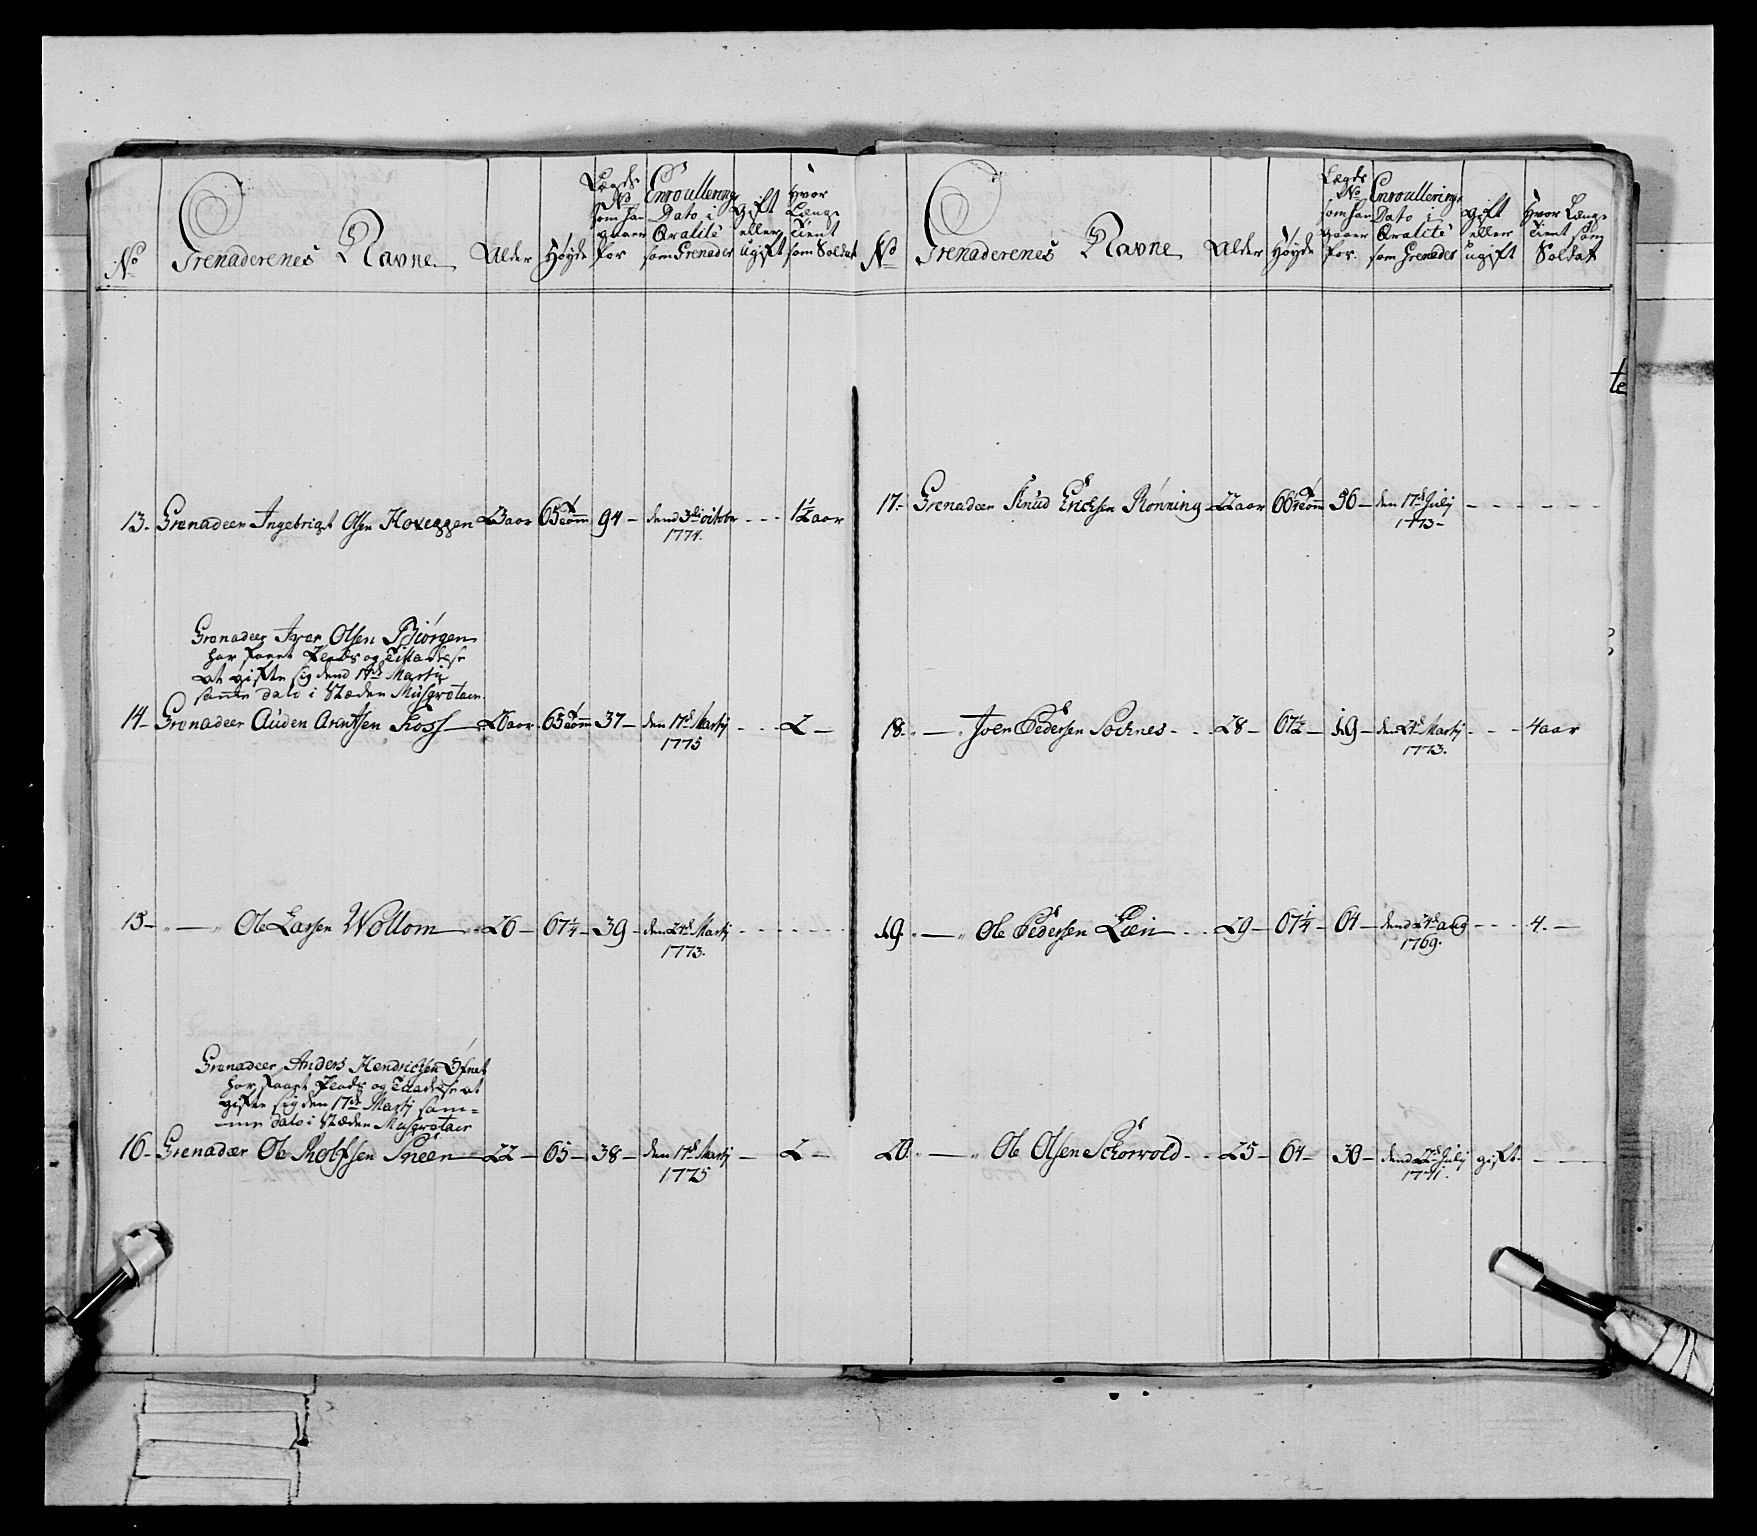 No
Grenaderenes Navne
Alder
Høyde
Lægds No som han staaer for
Enroullerings Dato i Qvalité som Grenader
gift eller ugift
hvor Længe Tient som Soldat
13. Grenadeer Ingebrigt Olsen Hoveggen 23 aar 65 Tomm 94 - dend 3de octobr 1774. - - - 1½ aar
Grenadeer Iver Olsen Biørgen
har faaet Plads og Tilladelse
at gifte sig dend 17de Martij
samme dato i Stæden Musqvetair
14 - Grenadeer Auden Arentsen Foss - 26 aar 65 Tomm 37 - den 17de Martij 1775 - - - 2 -
15 - - Ole Larsen Wollom - 26 - 67¼ - 39 - den 24de Martij 1773.
Grenadeer Anders Hendrichsen Øfnet
har faaet Plads og Tilladelse at
gifte sig den 17de Martij sam=
me dato i Stæden Musqvetair
16 - Grenadær Ole Rolfsen Sneen - 22 - 65 - 38 - den 17de Martij 1775 - 2 -
No
Grenaderenes Navne
Alder
Høyde
Lægds No som han staaer for.
Enroullerings Dato i Qvalité som Grenader
gift eller ugift
hvor Længe Tient som Soldat
17. Grenadeer Knud Erichsen Rønning - 22 aar 66½ Tomm 36 - den 17de Julij 1773 -
18. - Joen Pedersen Sochnes - 28 - 67½ - 19 - den 24de Martij 1773. - - - 4 aar
19. - Ole Pedersen Lien - 29 - 67¼ - 64 - dend 24de aug 1769. - - - 4. -
20. - Ole Olsen Schorvold - 25 - 64 - 30 - dend 22de Julij 1771. gift -
te